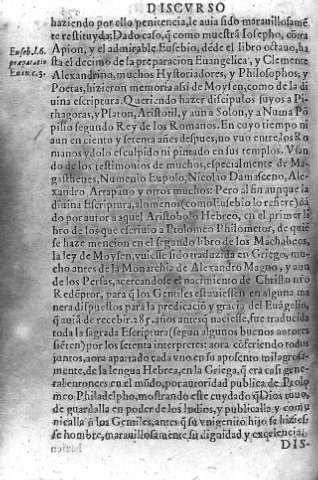 DISCVRSO
haziendo por ello penitencia, le auia sido marauillosamẽ
te restituyda: Dado caso, q̃ como muestra Iosepho, cõtra
Euseb.l.6.
præparatio
Euan.c.3.
Apion, y el admirable Eusebio, dẽde el libro octauo, has
ta el decimo de la preparacion Euangelica, y Clemente
Alexandrino, muchos Hystoriadores, y Philosophos, y
Poetas, hizieron memoria assi de Moysen, como de la di
uina escriptura. Queriendo hazer discipulos suyos a Pi-
thagoras, y Platon, Aristotil, y aun a Solon, y a Numa Põ
pilio segundo Rey de los Romanos. En cuyo tiempo ni
aun en ciento y setenta años despues, no vuo entre los Ro
manos ydolo esculpido ni pintado en sus templos. Vsan
do de los testimonios de muchos, especialmente de Ma-
gasthenes, Numenio Eupolo, Nicolao Damasceno, Ale-
xandro Arrapano y otros muchos: Pero al fin aunque la
diuina Escriptura, alomenos (como Eusebio lo refiere) dã
do por autor a aquel Aristobolo Hebreo, en el primer li
bro de los que escriuio a Ptolomeo Philometor, de quiẽ
se haze mencion en el segundo libro de los Machabeos,
la ley de Moysen, vuiesse sido traduzida en Griego, mu-
cho antes de la Monarchia de Alexandro Magno, y aun
de los Persas, acercandose el nacimiento de Christo nr̃o
Redẽptor, para q̃ los Gentiles estuuiessen en alguna ma
nera dispuestos para la predicaciõ y gracia del Euãgelio,
q̃ auiã de recebir. 285. años antes q̃ naciesse, fue traduzida
toda la sagrada Escriptura (segun algunos buenos autores
siẽten) por los setenta interpretes: aora cõfiriendo todos
juntos, aora apartado cada vno en su aposento milagrosa-
mente, de la lengua Hebrea, en la Griega, q̃ era casi gene-
ral entonces en el mũdo, por autoridad publica de Ptolo
meo Philadelpho, mostrando este cuydado q̃ Dios tuuo,
de guardalla en poder de los Iudios, y publicalla y comu
nicalla a los Gentiles, antes q̃ su vnigenito hijo se hizies-
se hombre, marauillosamente su dignidad y excelencia.
DIS-